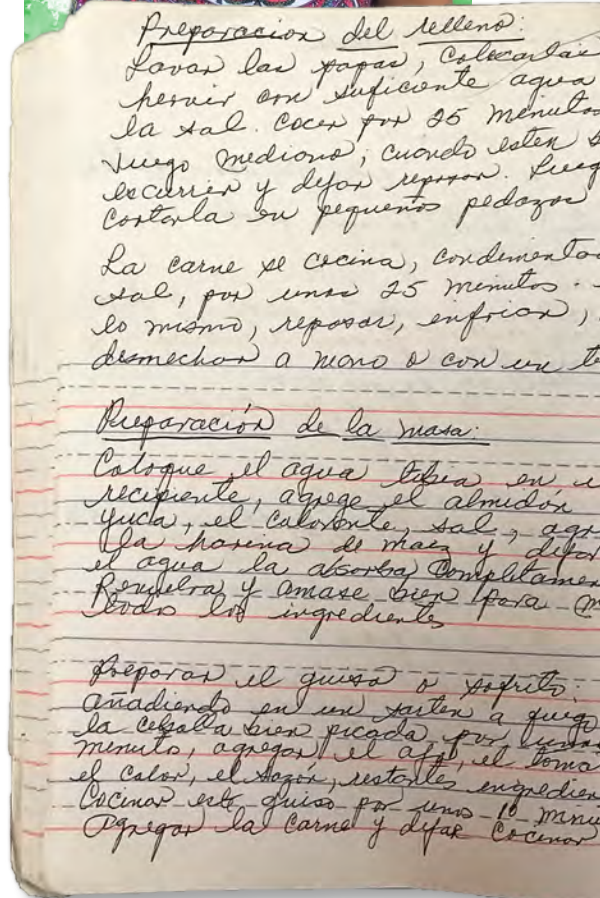 Preparacion del relleno:
Lavar las papas, colocarlas
hervir con suficiente agua
la sal. Cocer por 25 minutos
fuego mediano, cuando esten s
escurrir y dejar reposar. Lueg
cortarla en pequeños pedazos
La carne se cocina, condimentad
sal, por unos 25 minutos.
lo mismo, reposar, enfriar,
desmechar a mano o con un te
Preparación de la masa:
Coloque el agua tibia en u
recipiente, agrege el almidón
yuca, el colorante, sal, agr
la harina de maiz y dejar
el agua la absorba completamen
Revuelva y amase bien para m
todos los ingredientes
Preparar el guiso o sofrito:
añadiendo en un sarten a fuego
la cebolla bien picada por unos
minuto, agregar el ajo, el toma
el color, el sazón, restantes ingredien
Cocinar este guiso por unos 10 minu
Agregar la carne y dejar cocinar